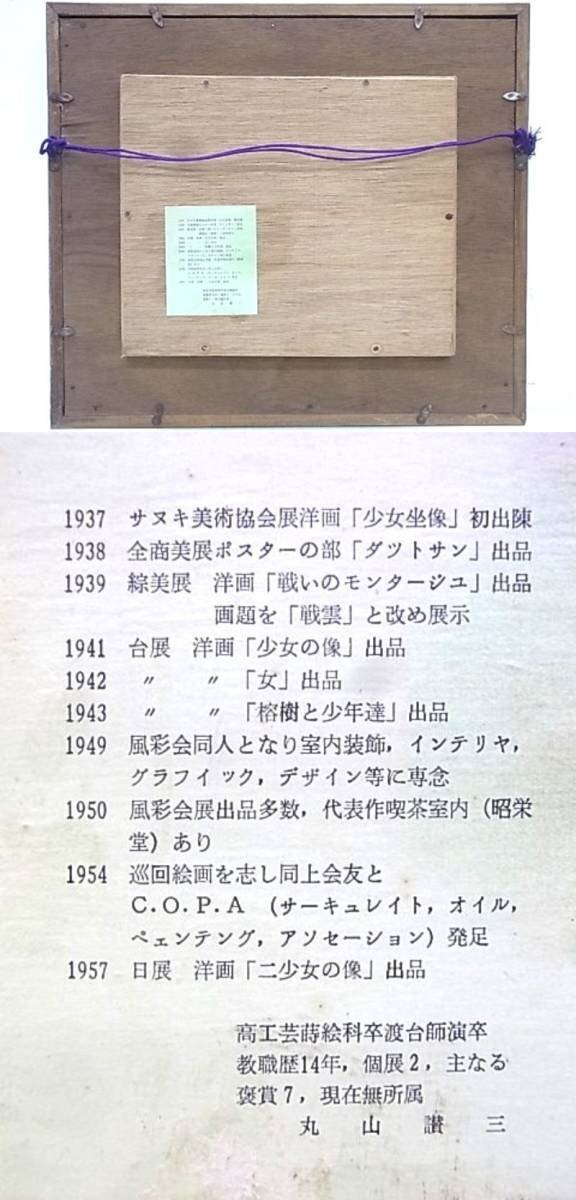 1937 サヌキ美術協会展洋画「少女坐像」初出陳
1938 全商美展ポスターの部「ダツトサン」出品
1939 綜美展 洋画「戦いのモンタージユ」出品
画題を「戦雲」と改め展示
1941 台展 洋画「少女の像」出品
1942 〃 〃 「女」出品
1943 〃 〃 「榕樹と少年達」出品
1949 風彩会同人となり室内装飾，インテリヤ，
グラフイック，デザイン等に専念
1950 風彩会展出品多数，代表作喫茶室内（昭栄
堂）あり
1954 巡回絵画を志し同上会友と
C.O.P.A （サーキュレイト，オイル，
ペェンテング，アソセーション）発足
1957 日展 洋画「二少女の像」出品
高工芸蒔絵科卒渡台師演卒
教職歴14年，個展2，主なる
褒賞7，現在無所属
丸山讃三